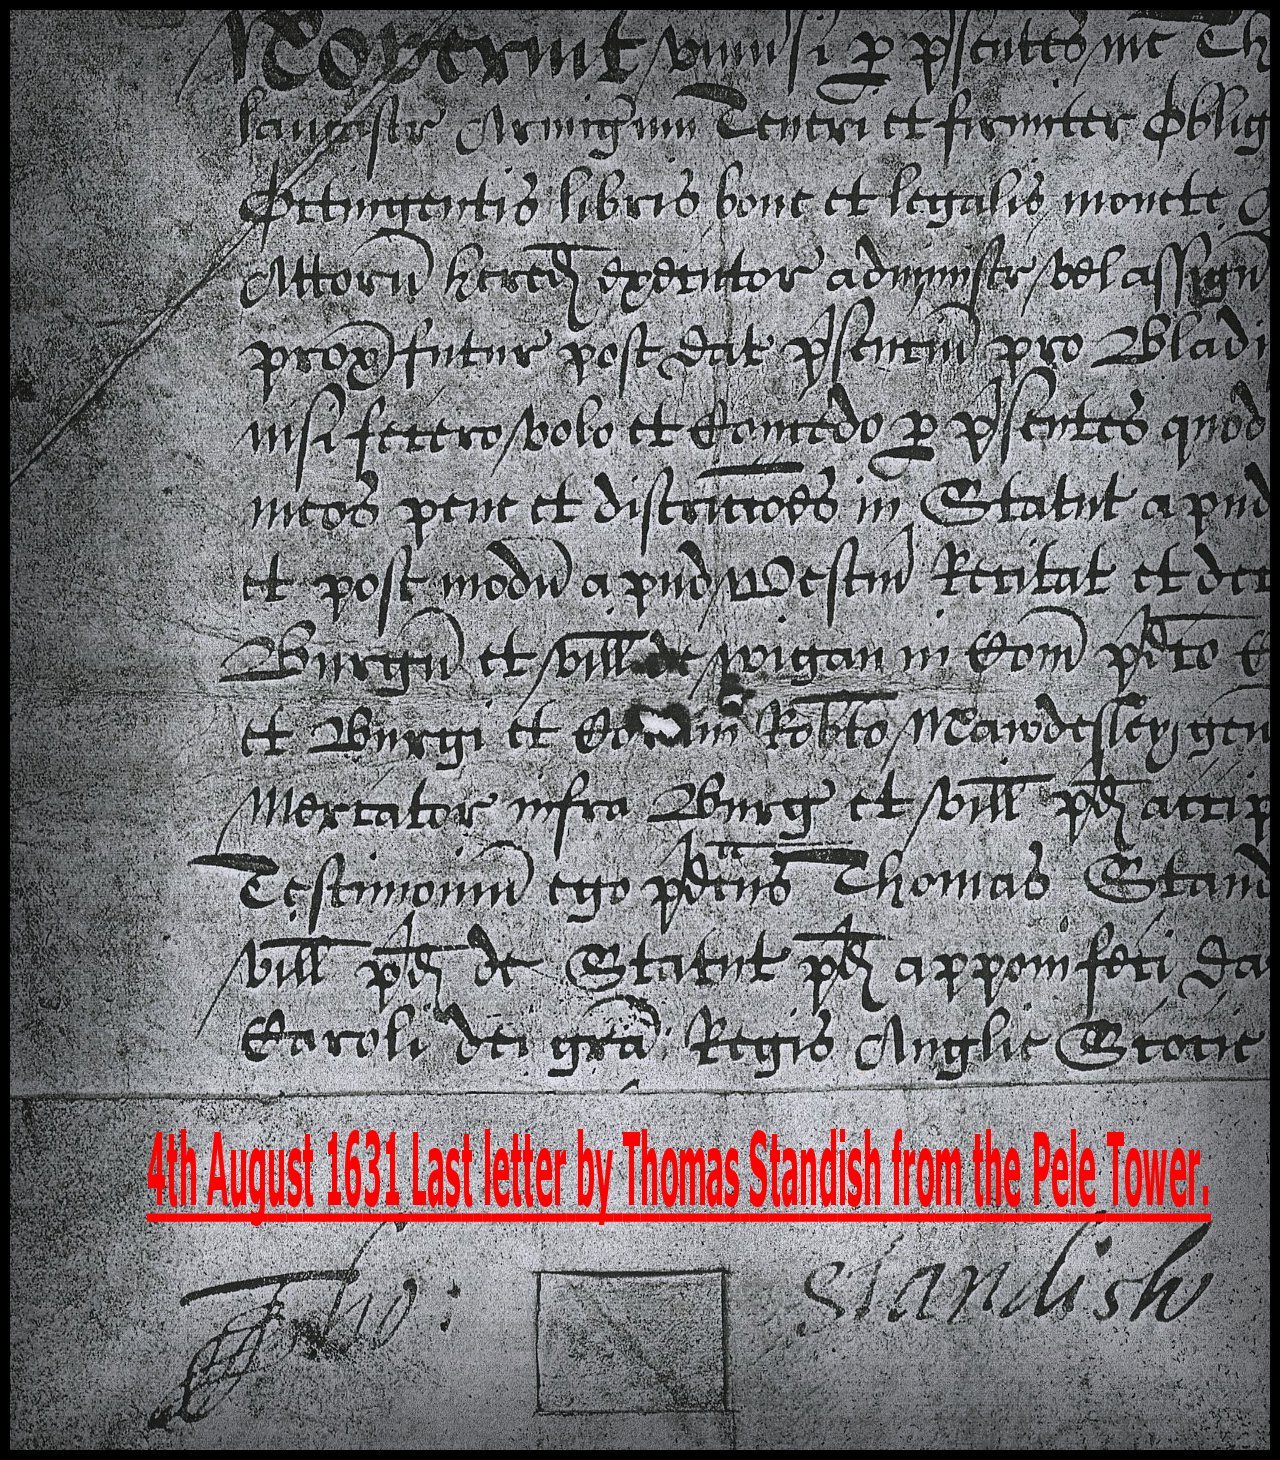 Noverint univsi p psentes me Th
Lancastr Armigum Teneri et firmiter Oblig
Octingentis libris bone et legalis monete
Attorn hered executor administr vel assign
prox futur post dat psentiu pro Bladi
nisi fecero volo et Concedo p psentes quod
meos pene et districcoes in Statut apud
et post modu apud Westm Recitat et
Burgu et vill de Wigan in Com pdto
et Burgi et Robto Mawdesley gen
Mercator infra Burg et vill pd
Testimoniu ego pdcus Thomas Stand
vill pd de Statut pd appoin feci Da
Caroli dei gra Regis Anglie Scotie
4th August 1631 Last letter by Thomas Standish from the Pele Tower.
Tho: Standish